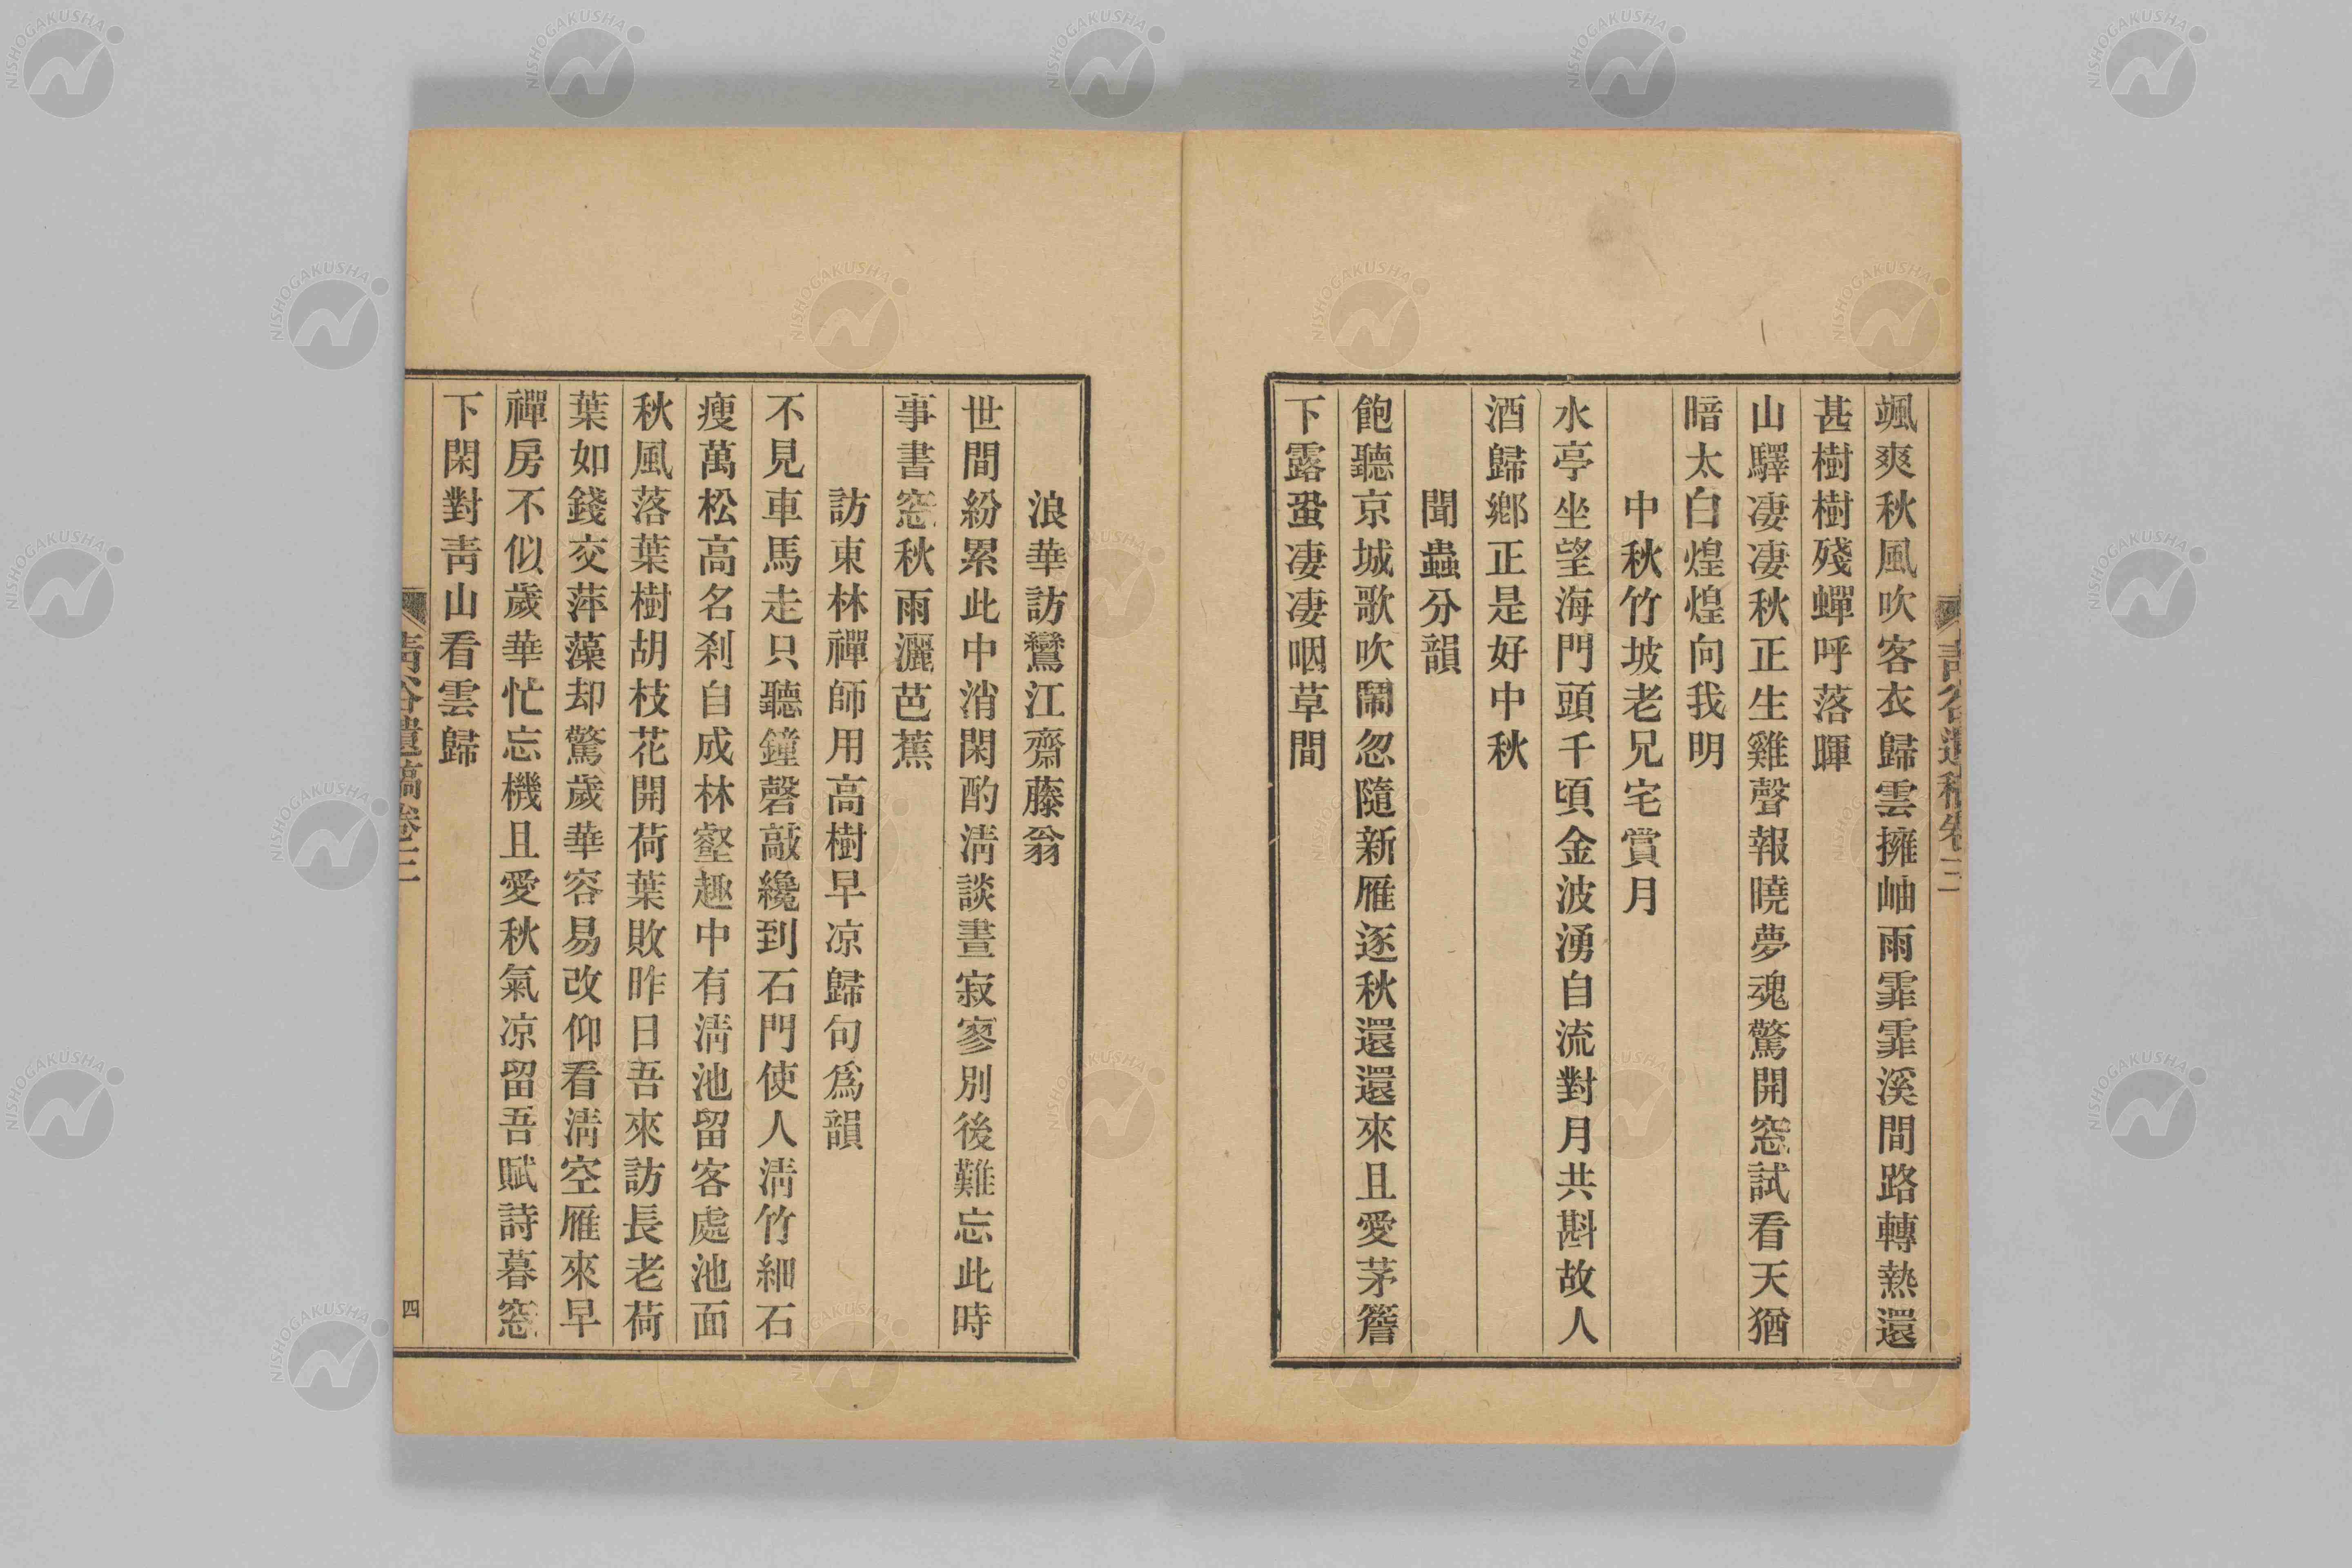 颯爽秋風吹客衣歸雲擁岫雨霏霏溪間路轉熱還
甚樹樹殘蟬呼落暉
山驛凄凄秋正生雞聲報曉夢魂驚開窓試看天猶
暗太白煌煌向我明
中秋竹坡老兄宅賞月
水亭坐望海門頭千頃金波湧自流對月共斟故人
酒歸鄕正是好中秋
聞蟲分韻
飽聽京城歌吹鬧忽隨新雁逐秋還還來且愛茅簷
下露蛩凄凄咽草間
浪華訪鸞江齋藤翁
世間紛累此中消閑酌淸談晝寂寥別後難忘此時
事書窓秋雨灑芭蕉
訪東林禪師用高樹早凉歸句爲韻
不見車馬走只聽鐘磬敲纔到石門使人淸竹細石
瘦萬松高名刹自成林壑趣中有淸池留客處池面
秋風落葉樹胡枝花開荷葉敗昨日吾來訪長老荷
葉如錢交萍藻却驚歲華容易改仰看淸空雁來早
禪房不似歲華忙忘機且愛秋氣凉留吾賦詩暮窓
下閑對靑山看雲歸
靑谷遺稿卷三
四
NISHOGAKUSHA